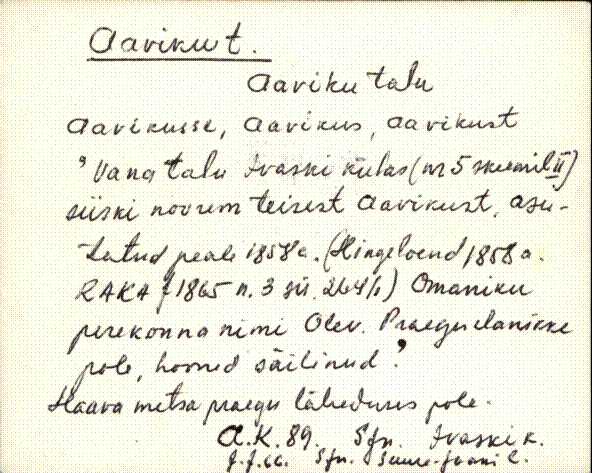 Aaviku t.
Aaviku talu
Aavikusse, Aavikus, Aavikust
'Vana talu Ivaski külas (nr 5 skeemil II)
siiski noorem teisest Aavikust, asu-
tatud peale 1858 a. (Hingeloend 1858 a.
RAKA f 1865 n. 3 sü. 264/1) Omaniku
perekonna nimi Olev. Praegu elanikke
pole, hooned säilinud.'
Haava metsa praegu läheduses pole.
A.K. 89. Sjn. Ivaski k.
J.J. 66. Sjn. Suure-Jaani l.